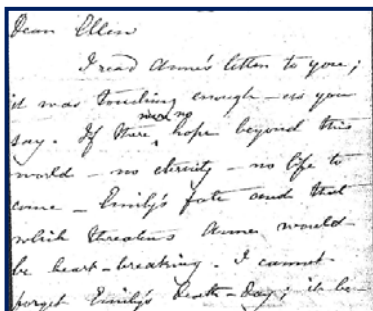 Dear Ellen
I read Anne's letter to you;
it was touching enough – as you
say. If there were no hope beyond this
world – no eternity – no life to
come – Emily's fate and that
which threatens Anne would
be heart-breaking. I cannot
forget Emily's death-day; it be-